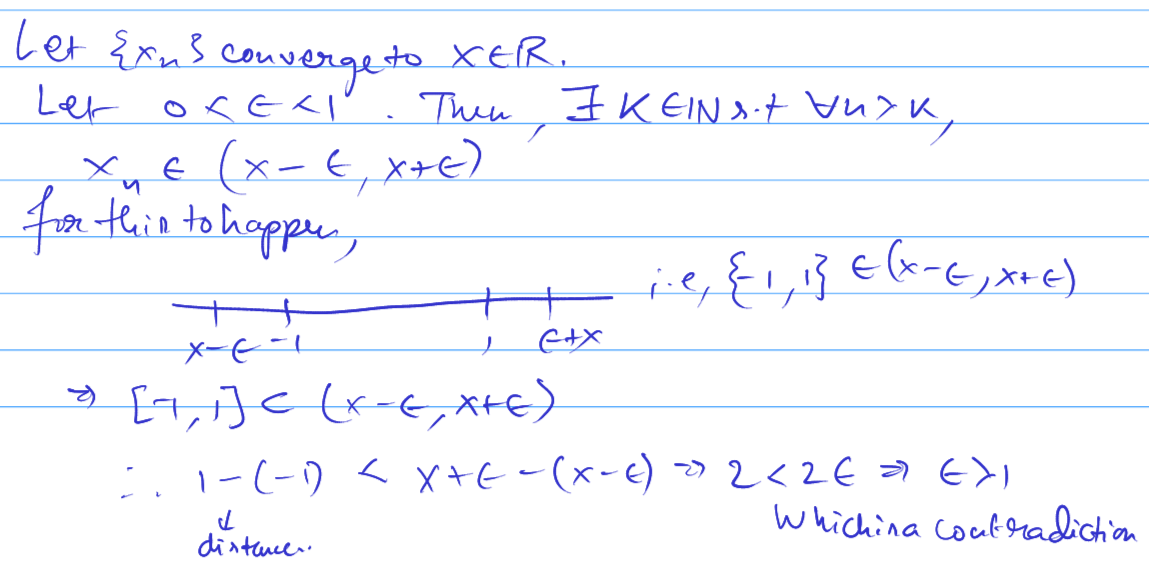 Let {xₙ} converge to x∈ℝ.
Let 0<ϵ<1. Then, ∃ K∈ℕ s.t ∀n>K,
xₙ ∈ (x-ϵ, x+ϵ)
for this to happen,
i.e, {-1, 1} ∈ (x-ϵ, x+ϵ)
x-ϵ -1 1 ϵ+x
⇒ [-1, 1] ⊂ (x-ϵ, x+ϵ)
∴ 1-(-1) < x+ϵ-(x-ϵ) ⇒ 2<2ϵ ⇒ ϵ>1
↓
distance..
Which is a contradiction